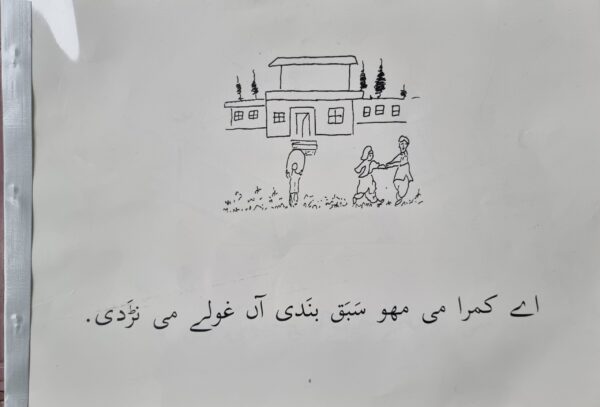 اے کمرا می مھو سَبَق بنَدی آں غولے می نڑَدی.